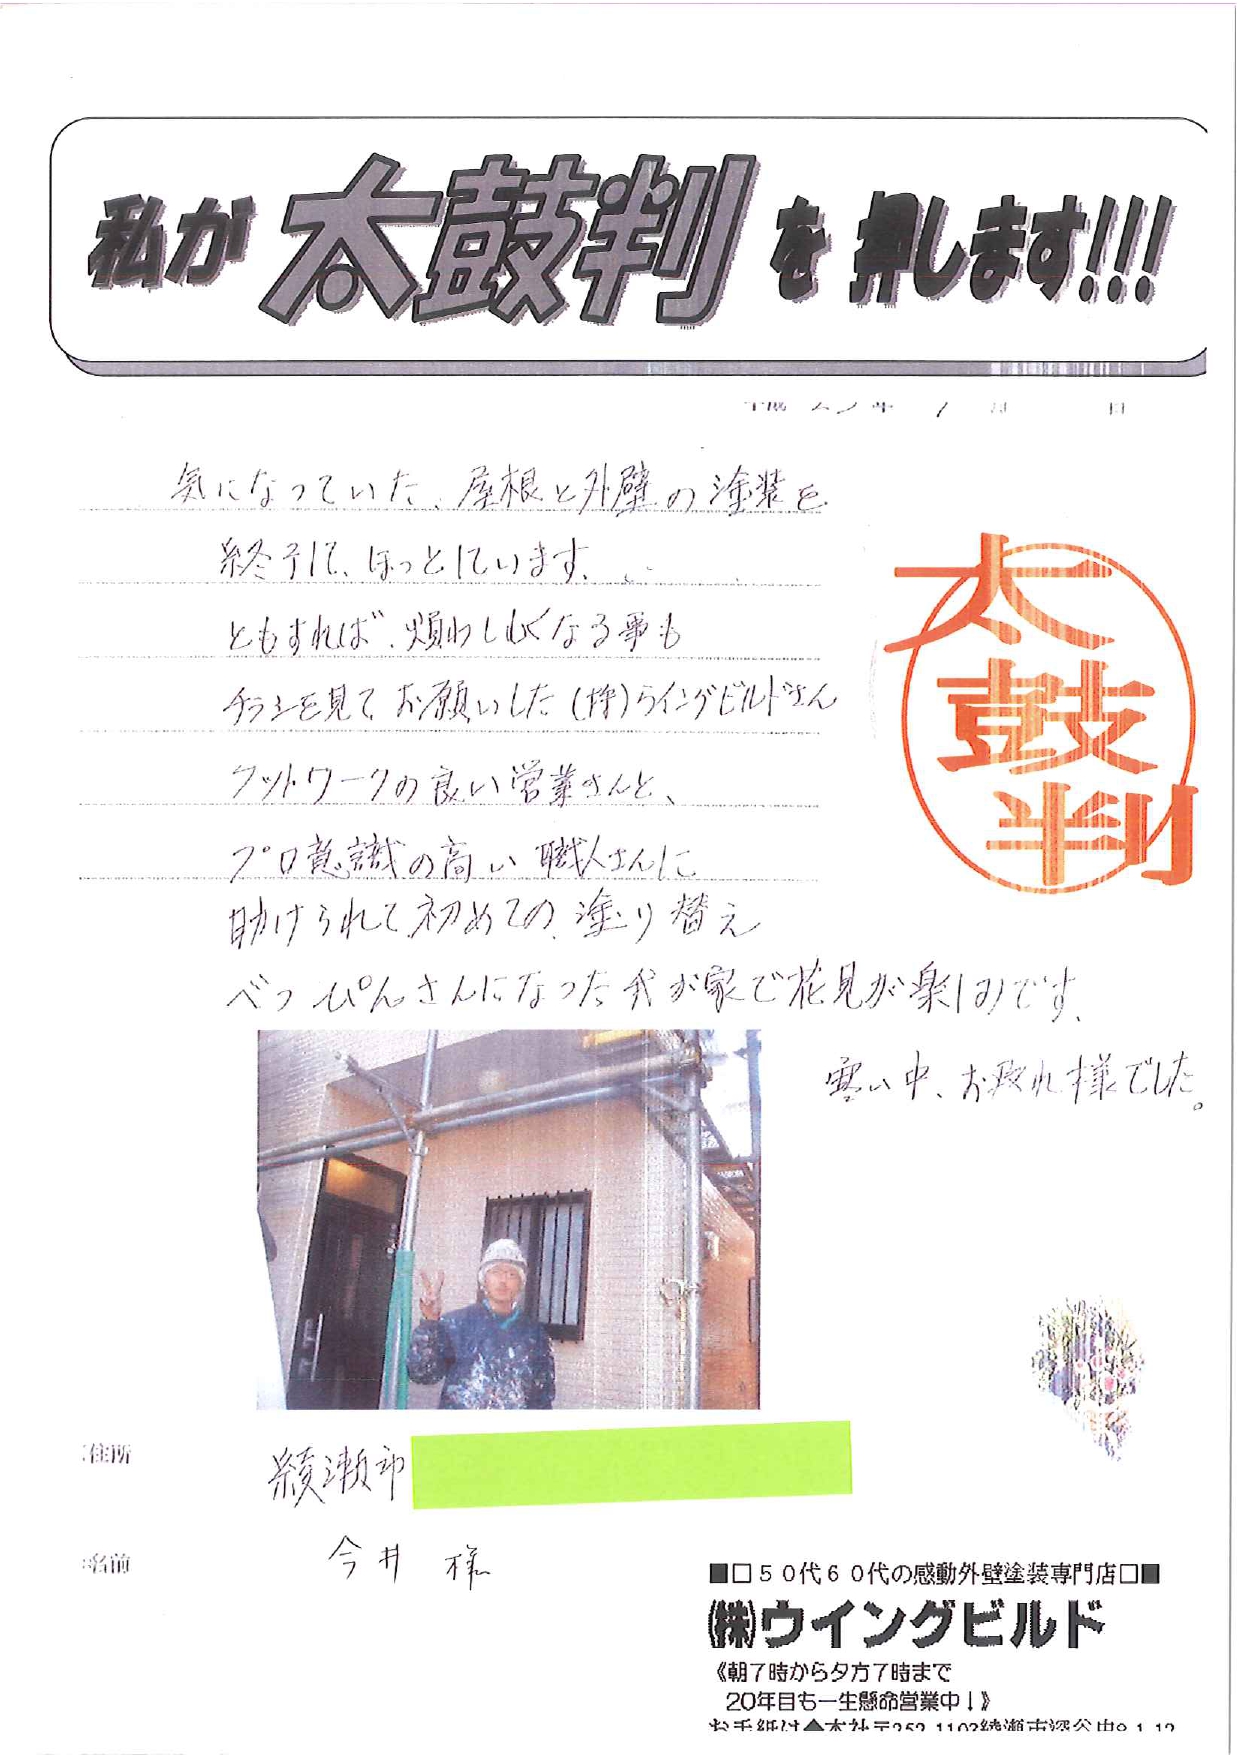 私が 太鼓判 を 押します!!!
年 1 月 日
気になっていた、屋根と外壁の塗装を
終了して、ほっとしています、
ともすれば、煩わしくなる事も
チラシを見てお願いした(株)ウイングビルドさん
フットワークの良い営業さんと、
プロ意識の高い職人さんに
助けられて初めての塗り替え
べっぴんさんになった我が家で花見が楽しみです、
寒い中、お疲れ様でした。
太鼓判
住所 綾瀬市
名前 今井 様
■□50代60代の感動外壁塗装専門店□■
(株)ウイングビルド
《朝7時から夕方7時まで
20年目も一生懸命営業中!》
お手紙は◆本社〒252-1103綾瀬市深谷中